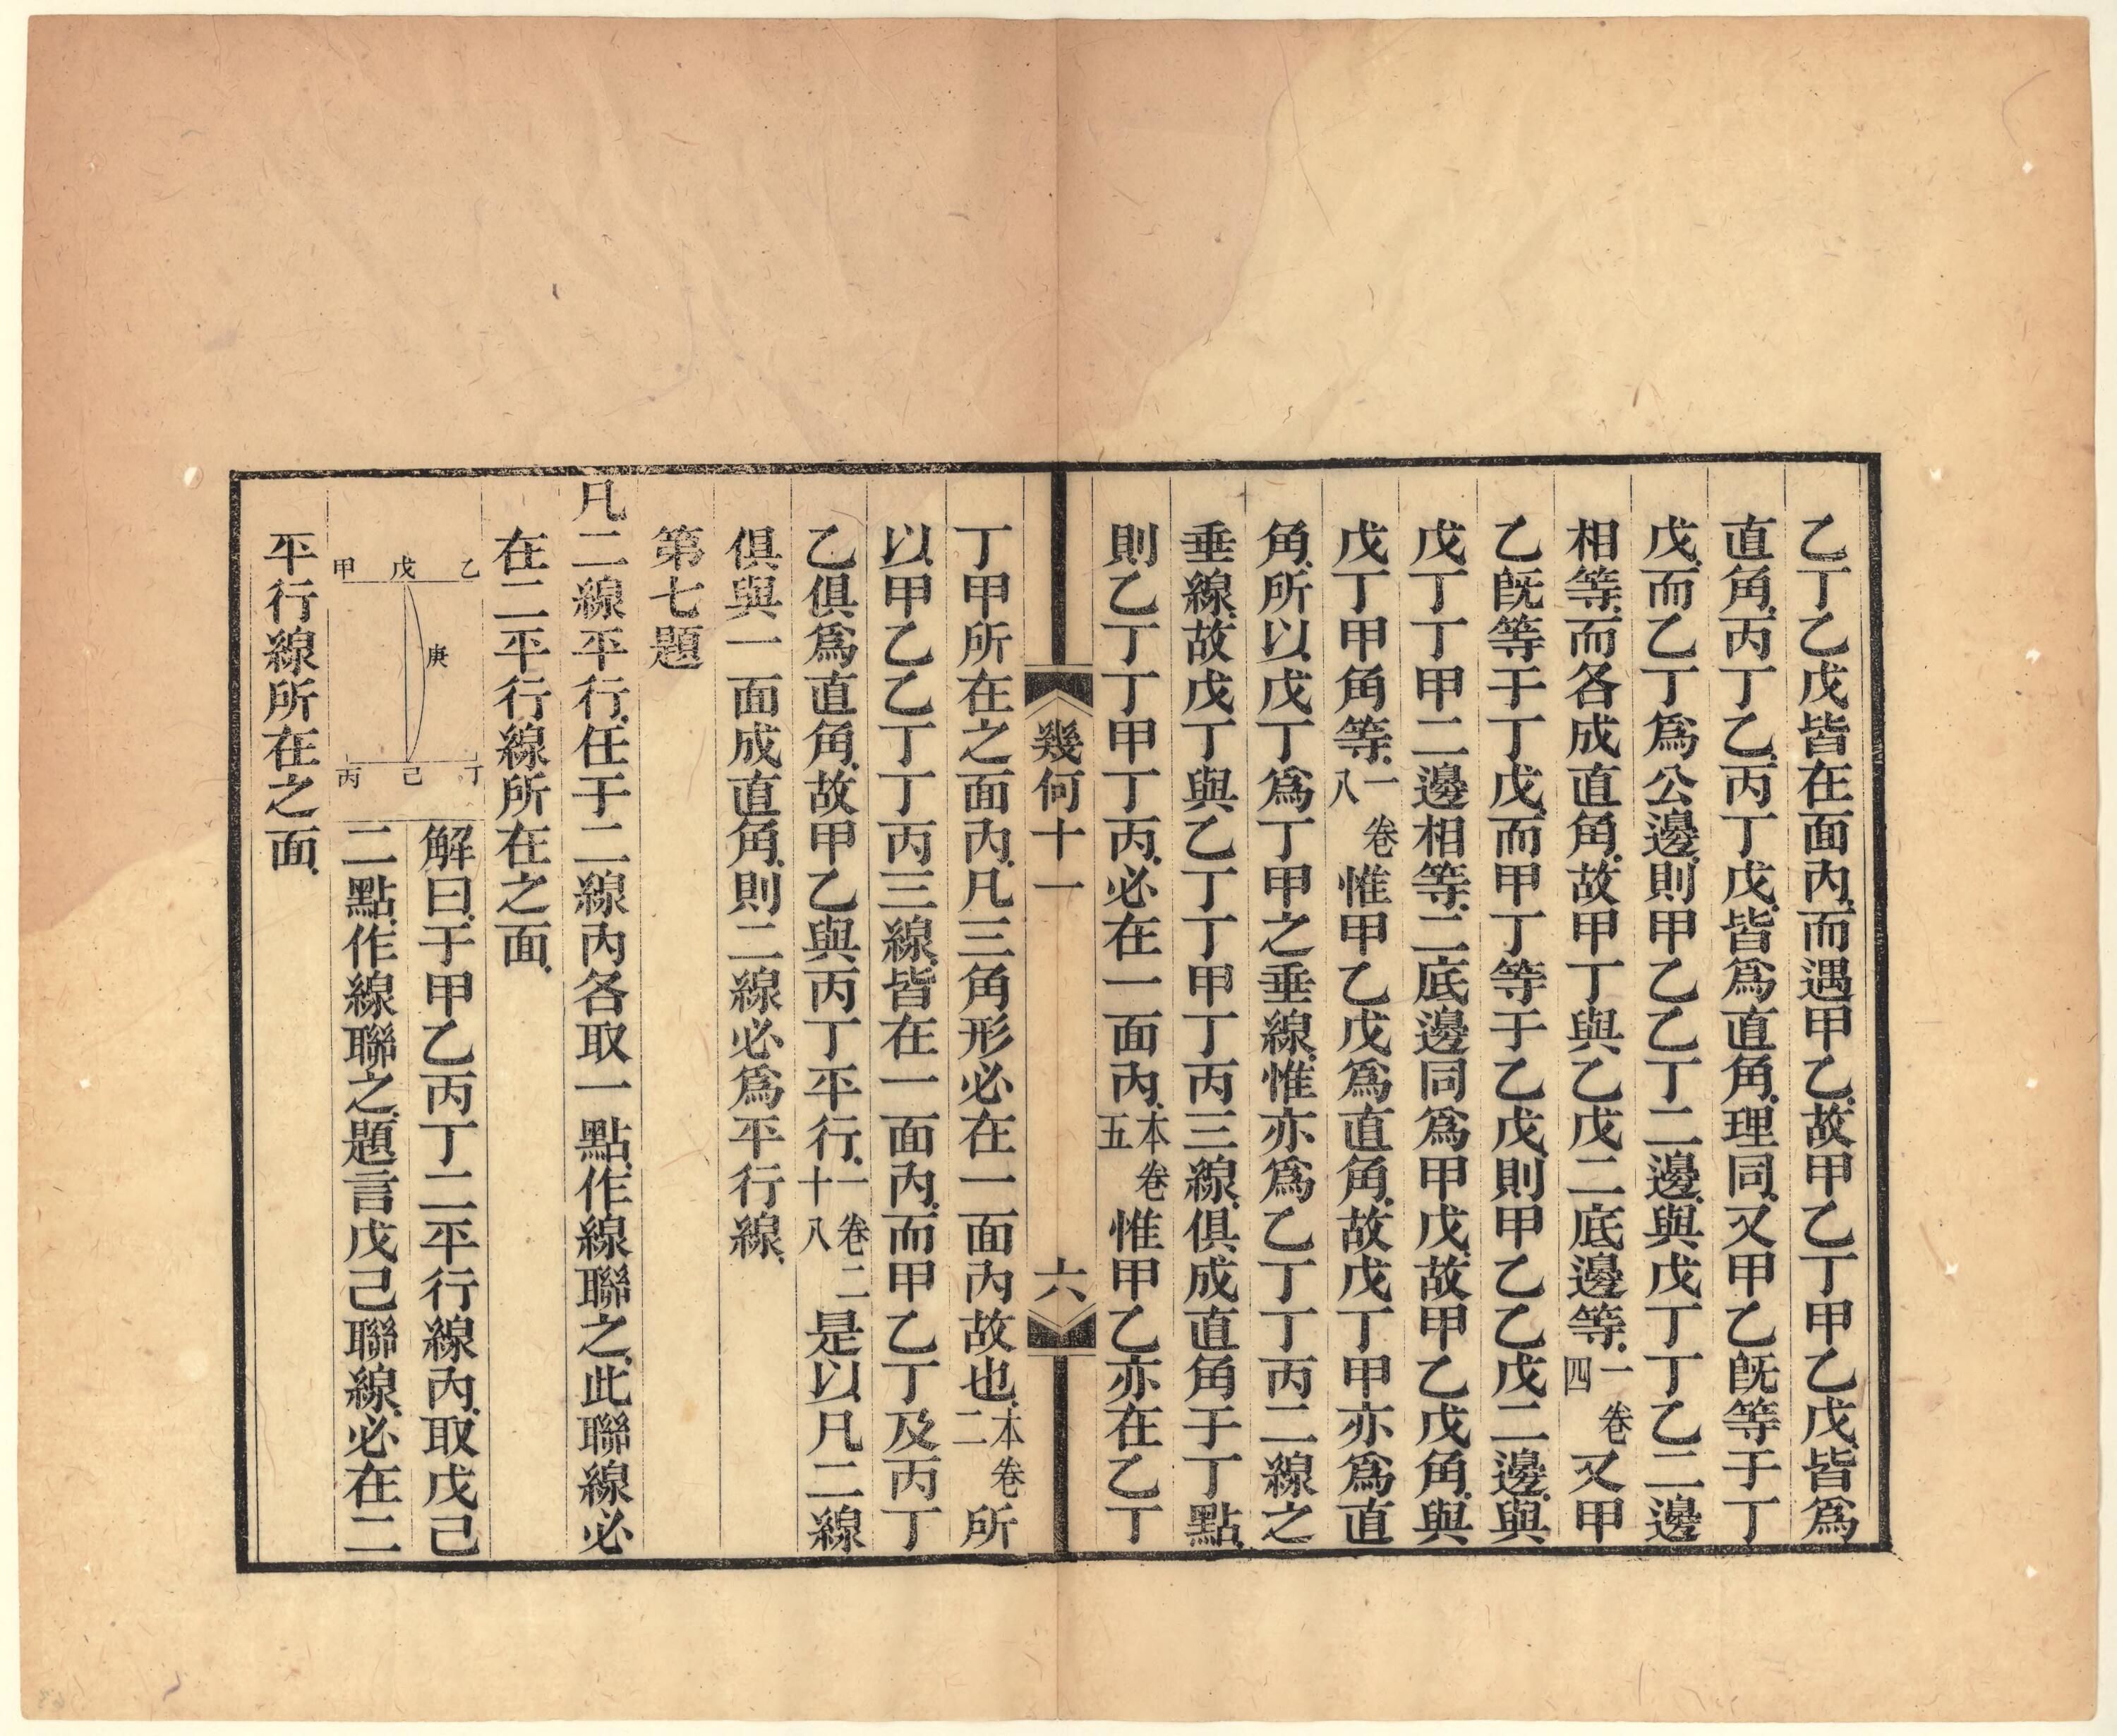 乙丁乙戊皆在面內、而遇甲乙、故甲乙丁甲乙戊、皆爲
直角、丙丁乙、丙丁戊、皆爲直角、理同、又甲乙旣等于丁
戊、而乙丁爲公邊、則甲乙乙丁二邊、與戊丁丁乙二邊
相等、而各成直角、故甲丁與乙戊二底邊等、一卷四又甲
乙旣等于丁戊、而甲丁等于乙戊、則甲乙乙戊二邊、與
戊丁丁甲二邊相等、二底邊同爲甲戊、故甲乙戊角、與
戊丁甲角等、一卷八惟甲乙戊爲直角、故戊丁甲亦爲直
角、所以戊丁爲丁甲之垂線、惟亦爲乙丁丁丙二線之
垂線、故戊丁與乙丁丁甲丁丙三線、俱成直角于丁點、
則乙丁丁甲丁丙、必在一面內、本卷五惟甲乙亦在乙丁
幾何十一 六
丁甲所在之面內、凡三角形必在一面內故也、本卷二所
以甲乙乙丁丁丙三線、皆在一面內、而甲乙丁及丙丁
乙俱爲直角、故甲乙與丙丁平行、一卷二十八是以凡二線
俱與一面成直角、則二線必爲平行線、
第七題
凡二線平行、任于二線內各取一點、作線聯之、此聯線必
在二平行線所在之面、
乙 戊 甲
庚
丁 己 丙
解曰、于甲乙丙丁二平行線內、取戊己
二點、作線聯之、題言戊己聯線、必在二
平行線所在之面、